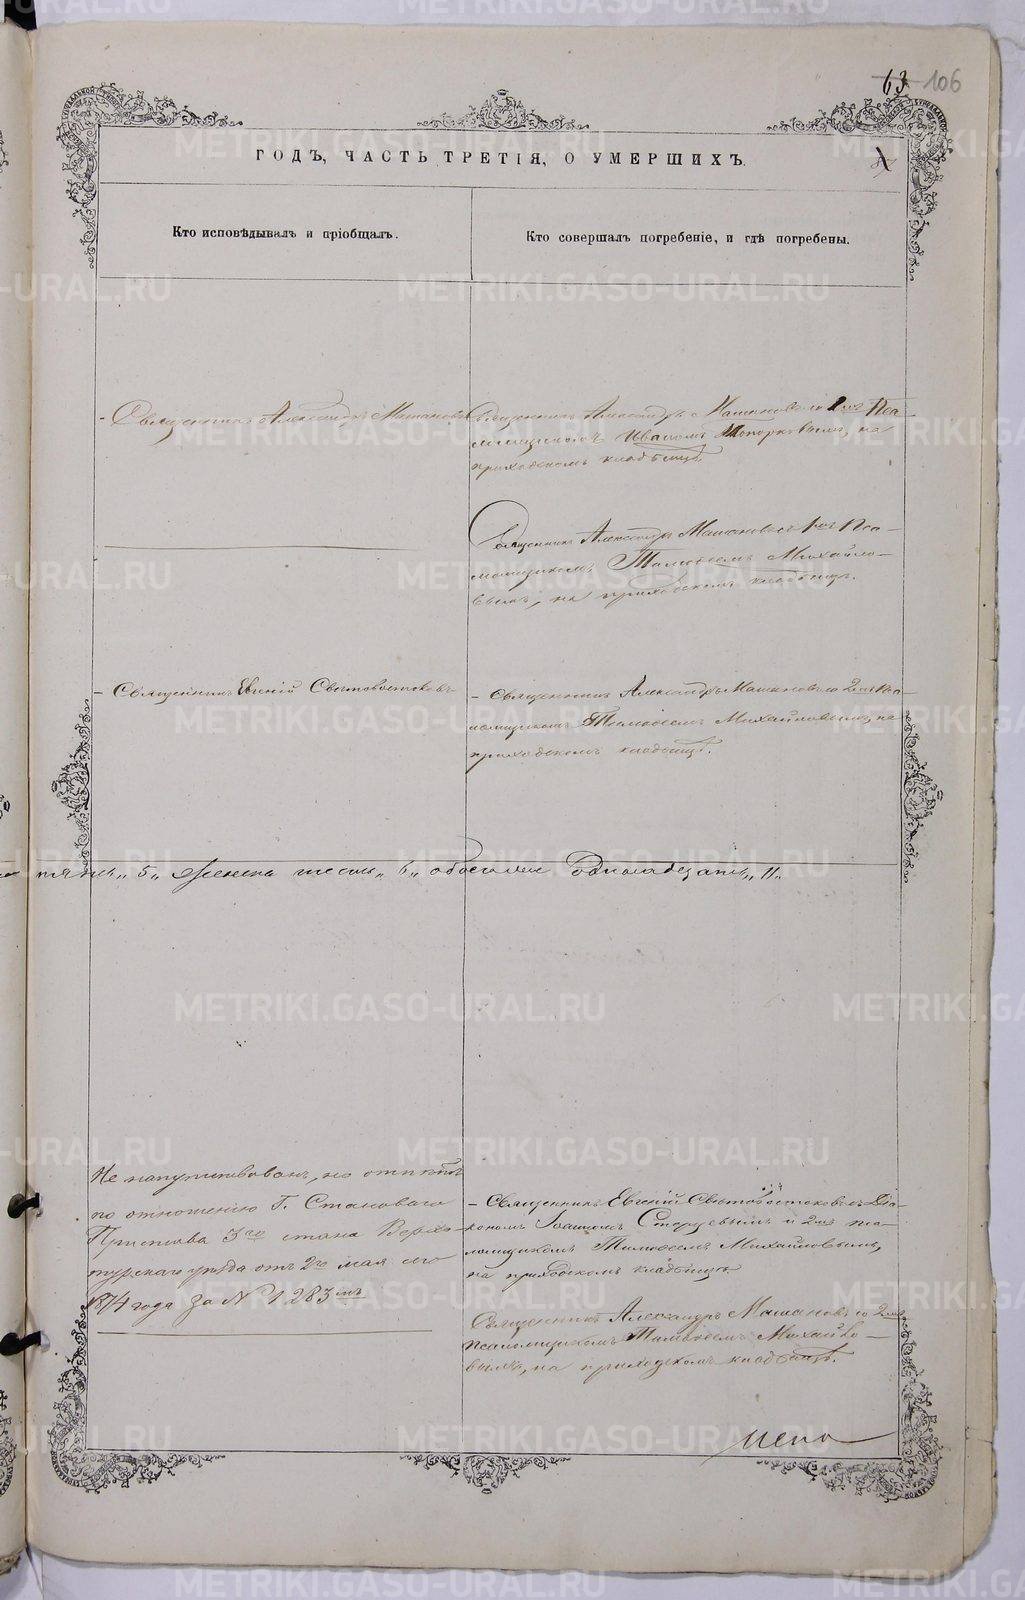 63 106
ГОДЪ, ЧАСТЬ ТРЕТІЯ, О УМЕРШИХЪ.
Кто исповѣдывалъ и пріобщалъ.
Кто совершалъ погребеніе, и гдѣ погребены.
- Священникъ Александръ Машановъ
Священникъ Александръ Машановъ со 2мъ Пса-
ломщикомъ Иваномъ Топорковымъ, на
приходскомъ кладбищѣ.
Священникъ Александръ Машановъ съ 1мъ Пса-
ломщикомъ Тимофеемъ Михайло-
вымъ, на приходскомъ кладбищѣ.
- Священникъ Евгеній Свѣтовостоковъ
- Священникъ Александръ Машановъ со 2мъ Пса-
ломщикомъ Тимофеемъ Михайловымъ, на
приходскомъ кладбищѣ.
пять „5„ женска шесть „6„ обоего одиннадцать „11„
Не напутствованъ, но отпѣтъ
по отношенію Г. Становаго
Пристава 3го стана Верхо-
турскаго уѣзда отъ 2го мая сего
1874 года за № 1283мъ
- Священникъ Евгеній Свѣтовостоковъ съ Діа-
кономъ и 2мъ пса-
ломщикомъ Тимофеемъ Михайловымъ,
на приходскомъ кладбищѣ
Священникъ Александръ Машановъ со 2мъ
Псаломщикомъ Тимофеемъ Михайло-
вымъ, на приходскомъ кладбищѣ.
METRIKI.GASO-URAL.RU